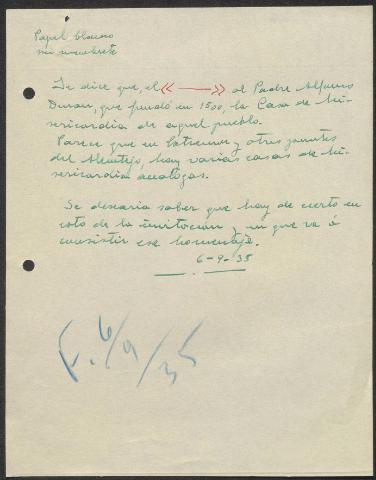 Papel blanco
sin membrete
Se dice que, el « — » al Padre Alfonso
Duran, que fundó en 1500, la Casa de Mi-
sericordia de aquel pueblo.
Parece que en Estremoz y otros puntos
del Alentejo, hay varias casas de Mi-
sericordia analogas.
Se desearia saber que hay de cierto en
esto de la invitacion y en que va á
consistir ese homenaje.
6-9-35
F. 6/9/35